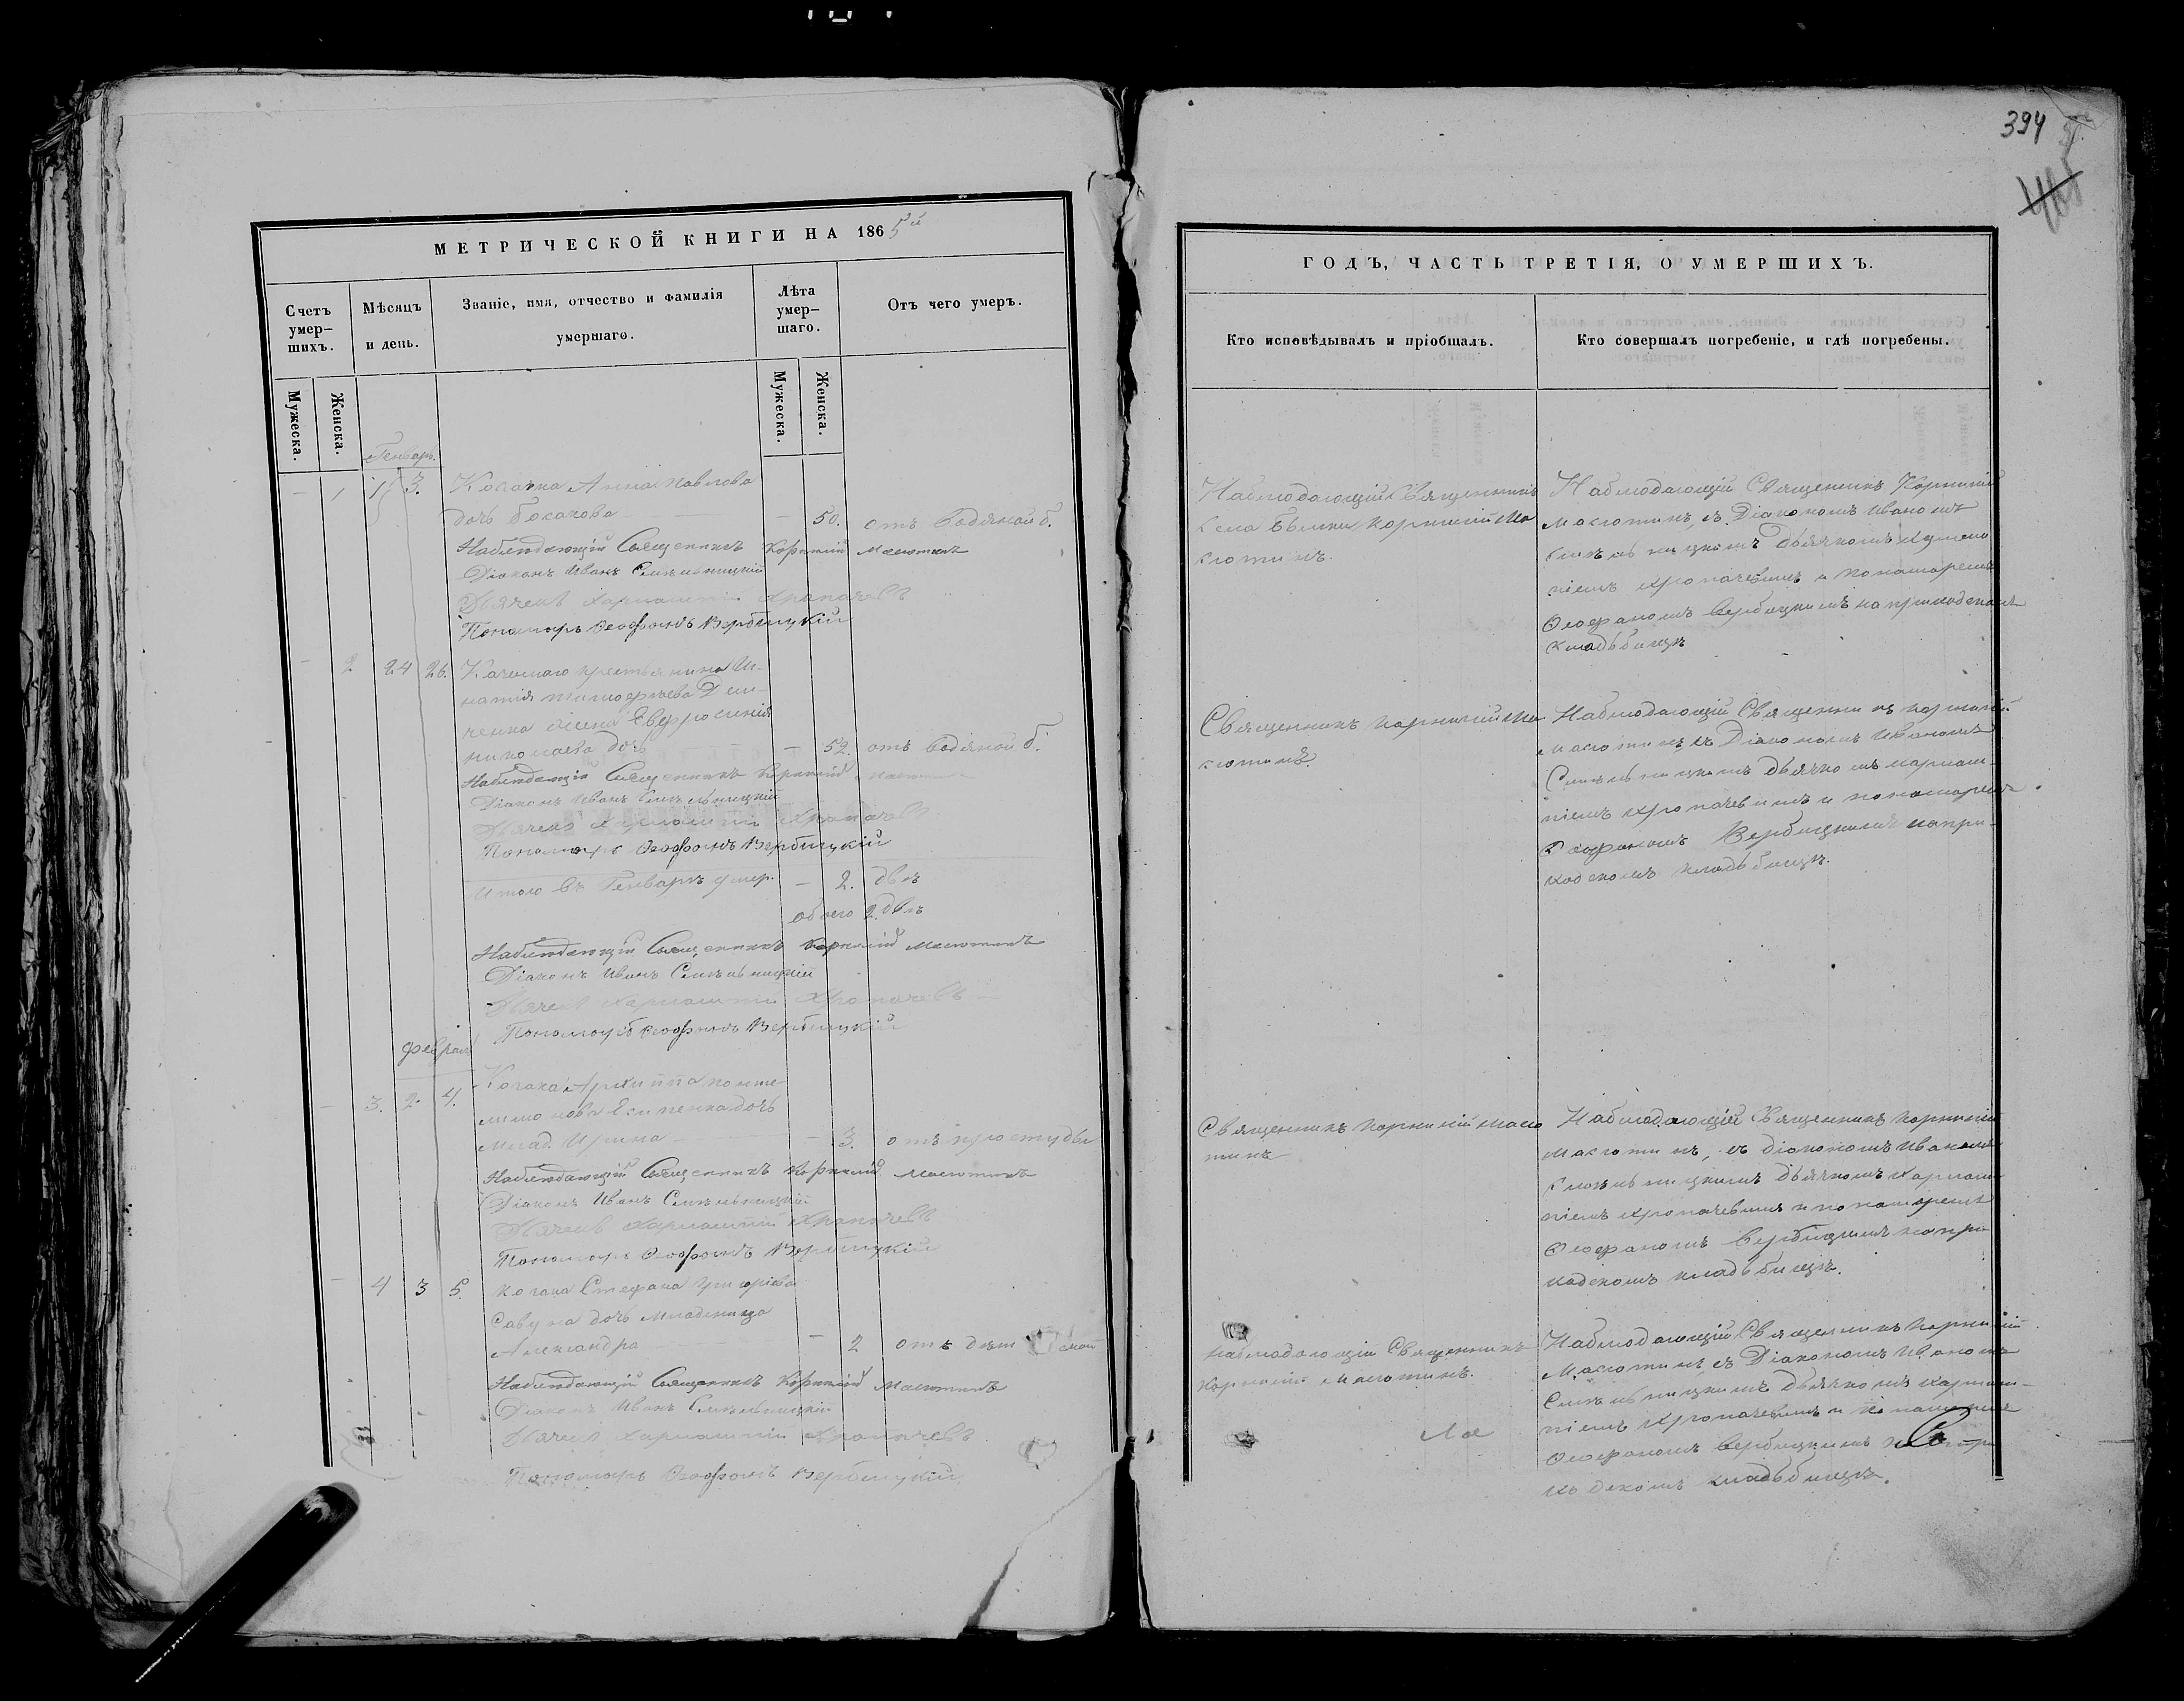 394
МЕТРИЧЕСКОЙ КНИГИ НА 1865й
Счетъ умер-шихъ.
Мѣсяцъ и день.
Званіе, имя, отчество и фамилія умершаго.
Лѣта умер-шаго.
Отъ чего умеръ.
Мужеска.
Женска.
Мужеска.
Женска.
Генварь.
1 1 3. Козачка Анна Павлова
дочь 50. отъ водяной б.
Наблюдающій Священникъ Корнилій Масютинъ
Діаконъ Иванъ
Дьячекъ Харлампій Хропачевъ
Пономарь Ѳеофанъ Вербицкій
2 24 26. крестьянина Иг-
натія Тимофѣева
жена Евфросинія
дочь 52. отъ водяной б.
Наблюдающій Священникъ Корнилій Масютинъ
Діаконъ Иванъ
Дьячекъ Харлампій Хропачевъ
Пономарь Ѳеофанъ Вербицкій
Итого въ Генварѣ умер. 2. двѣ
обоего 2 двѣ
Наблюдающій Священникъ Корнилій Масютинъ
Діаконъ Иванъ
Дьячекъ Харлампій Хропачевъ
Пономарь Ѳеофанъ Вербицкій
Феврал
3. 2. 4. Козака Архиппа Понте-
лимонова Есипенка дочь
млад. Ирина 3. отъ простуды
Наблюдающій Священникъ Корнилій Масютинъ
Діаконъ Иванъ
Дьячекъ Харлампій Хропачевъ
Пономарь Ѳеофанъ Вербицкій
4 3 5. Козака Стефана Григоріева
Савуна дочь младеница
Александра 2 отъ
Наблюдающій Священникъ Корнилій Масютинъ
Діаконъ Иванъ
Дьячекъ Харлампій Хропачевъ
Пономарь Ѳеофанъ Вербицкій
ГОДЪ, ЧАСТЬ ТРЕТІЯ, О УМЕРШИХЪ.
Кто исповѣдывалъ и пріобщалъ.
Кто совершалъ погребеніе, и гдѣ погребены.
Наблюдающій Священникъ
села Корнилій Ма
сютинъ.
Наблюдающій Священникъ Корнилій
Масютинъ, съ Діакономъ Иваномъ
Дьячкомъ
піемъ Хропачевымъ и Пономаремъ
Ѳеофаномъ Вербицкимъ на приходскомъ
кладьбищѣ
Священникъ Корнилій Ма
сютинъ.
Наблюдающій Священникъ Корнилій
Масютинъ съ Діакономъ Иваномъ
Дьячкомъ Харлам-
піемъ Хропачевымъ и пономаремъ
Ѳеофаномъ Вербицкимъ на при-
ходскомъ кладьбищѣ.
Священникъ Корнилій Масю
тинъ
Наблюдающій Священникъ Корнилій
Масютинъ, съ Діакономъ Иваномъ
Дьячкомъ Харлам
піемъ Хропачевымъ и пономаремъ
Ѳеофаномъ Вербицкимъ на при
ходскомъ кладьбищѣ.
Наблюдающій Священникъ
Корнилій Масютинъ.
Наблюдающій Священникъ Корнилій
Масютинъ съ Діакономъ Иваномъ
Дьячкомъ Харлам-
піемъ Хропачевымъ и пономаремъ
Ѳеофаномъ Вербицкимъ на при
ходскомъ кладьбищѣ.